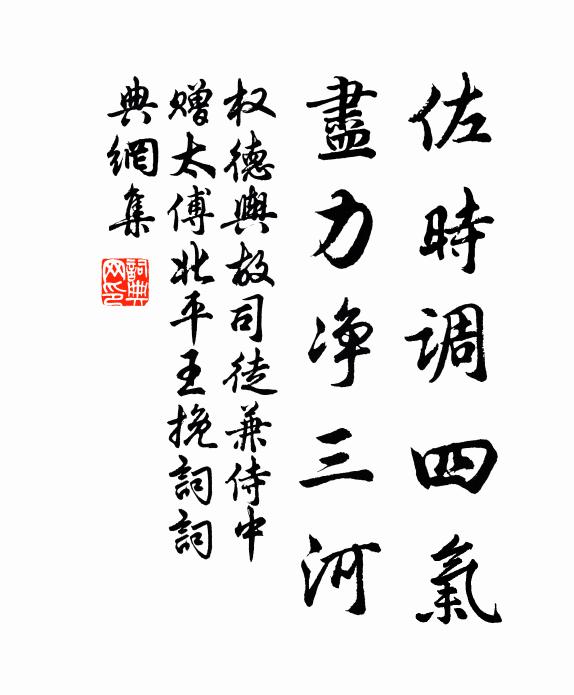 佐時調四氣
盡力净三河
权德輿故司徒兼侍中
贈太傅北平王挽詞詞
典網集
詞典
网印